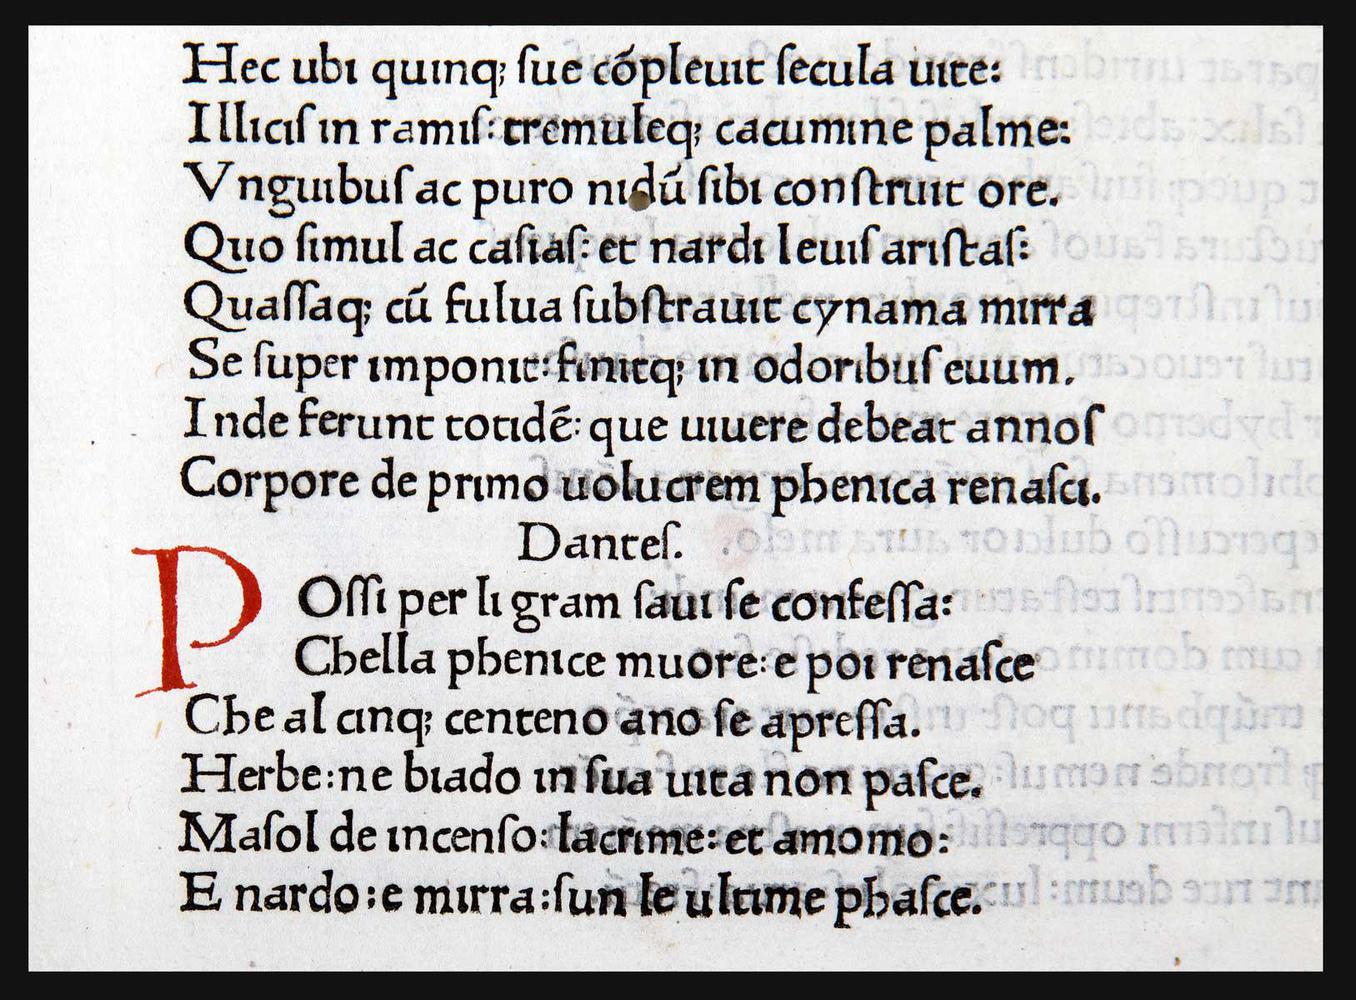 Hec ubi quinq; ſue cṍpleuit ſecula uite:
Illiciſ in ramiſ: tremuleq; cacumine palme:
Vnguibuſ ac puro nidũ ſibi conſtruit ore.
Quo ſimul ac caſiaſ: et nardi leuiſ ariſtaſ:
Quaſſaq; cũ fulua ſubſtrauit cynama mirra
Se ſuper imponit: finitq; in odoribuſ euum.
Inde ferunt totidẽ: que uiuere debeat annoſ
Corpore de primo uolucrem phenica renaſci.
Danteſ.
POſſi per li gram ſaui ſe confeſſa:
Chella phenice muore: e poi renaſce
Che al cinq; centeno ano ſe apreſſa.
Herbe: ne biado in ſua uita non paſce.
Maſol de incenſo: lacrime: et amomo:
E nardo: e mirra: ſun le ultime phaſce.